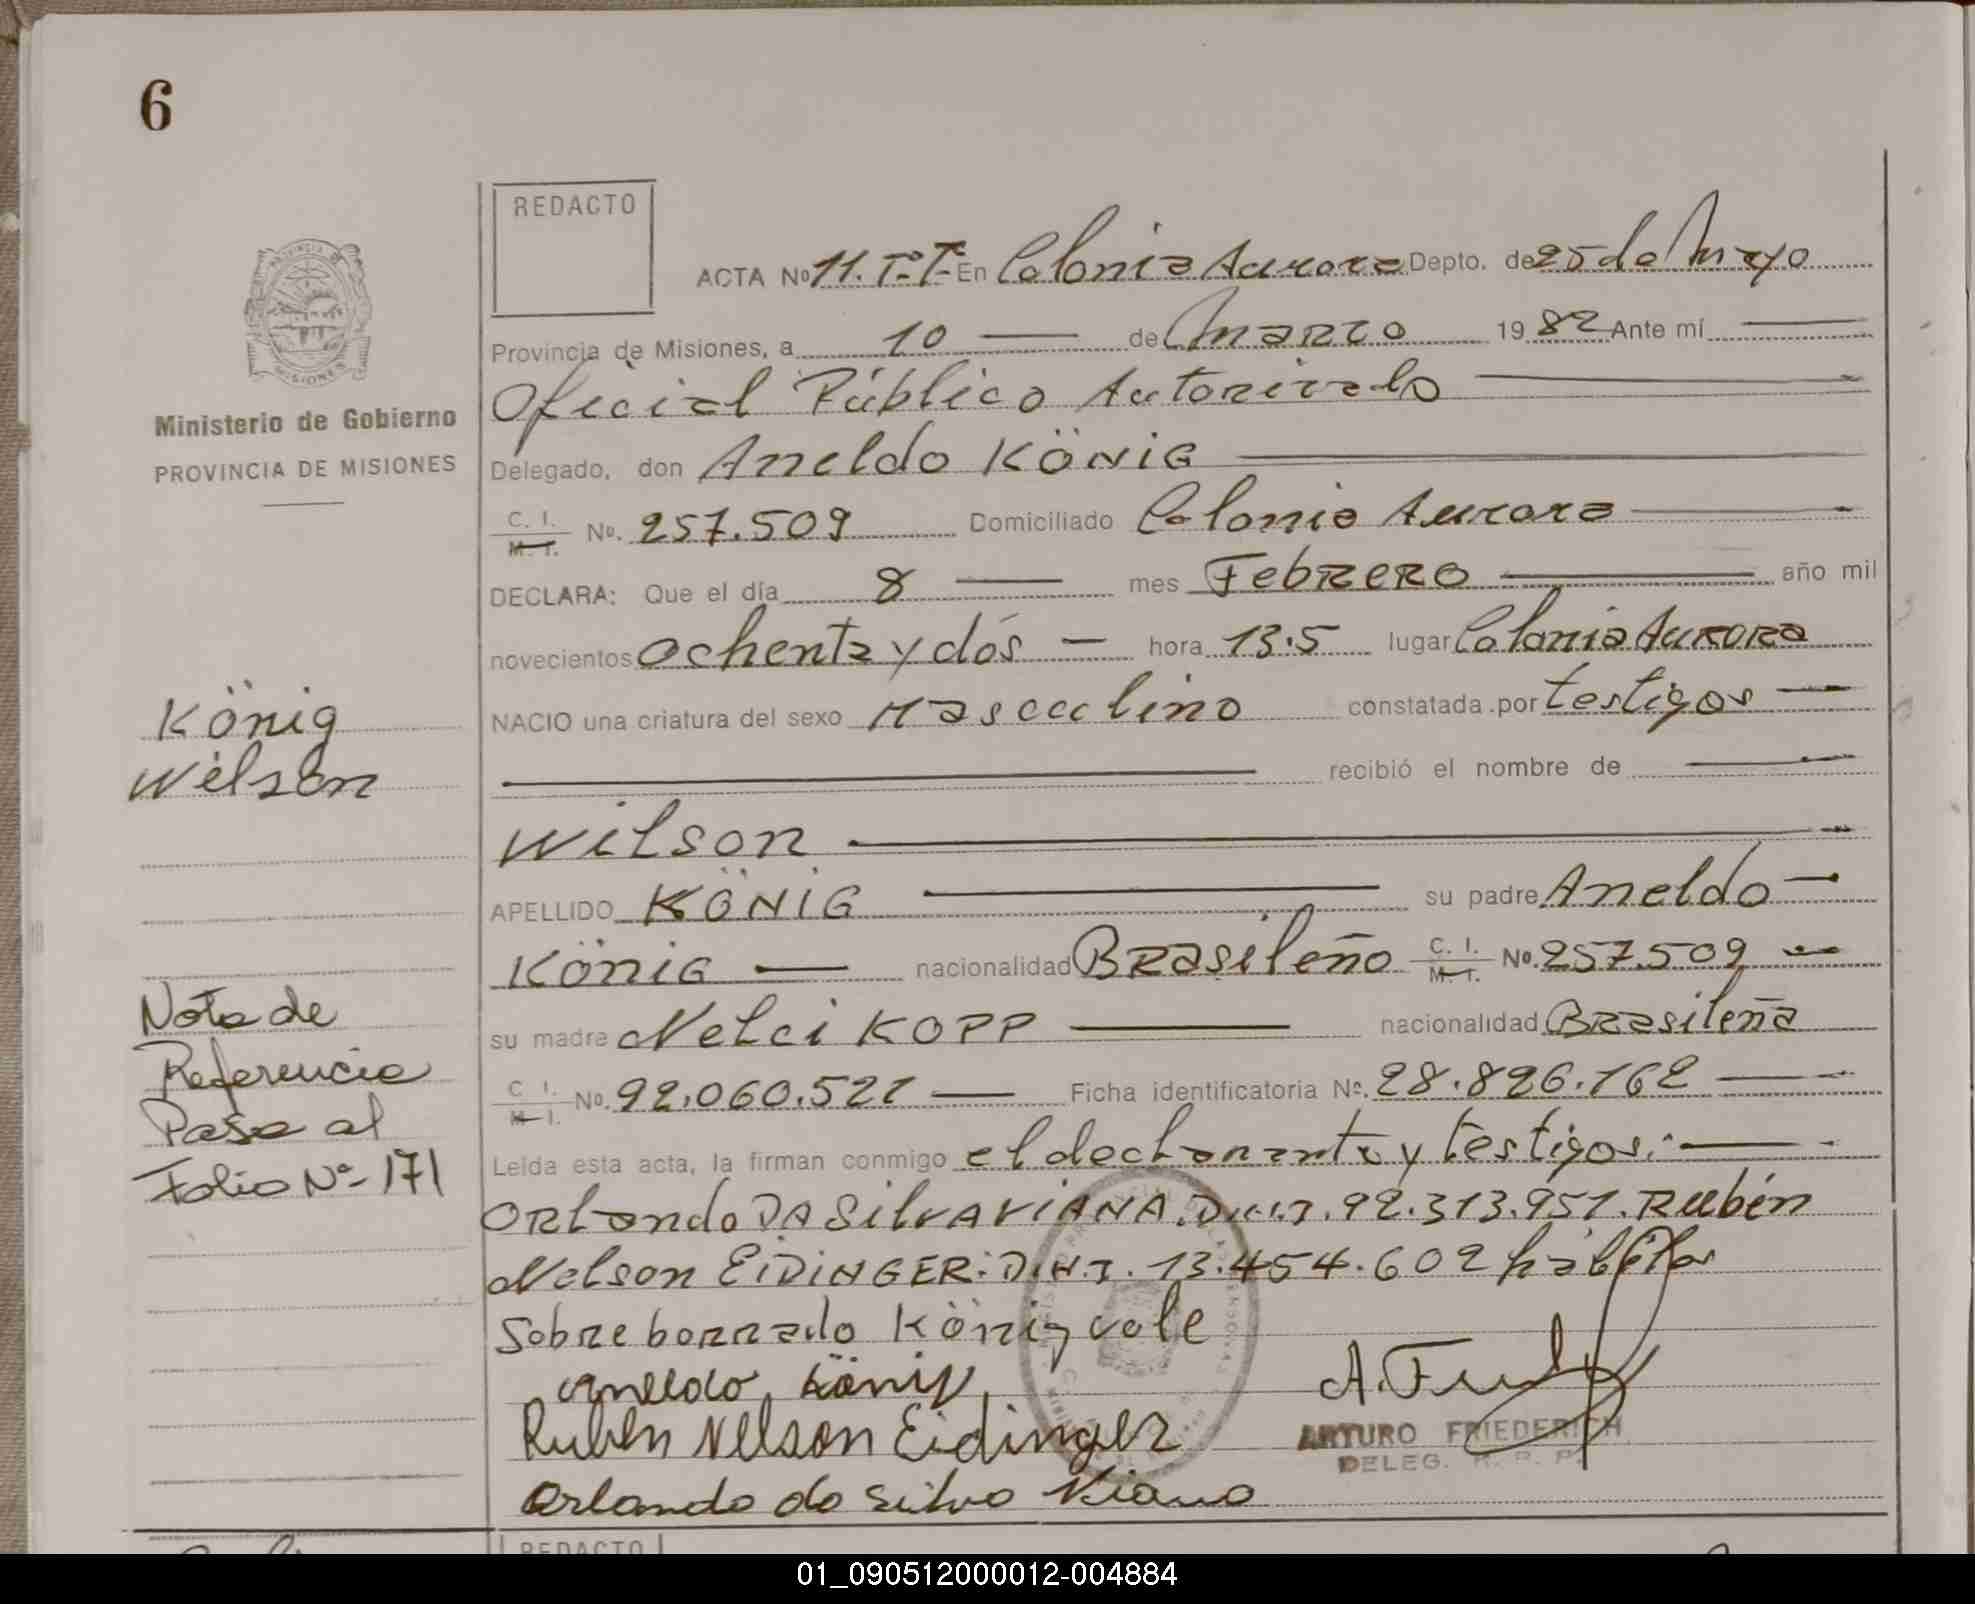 6
REDACTO
ACTA Nº 11. Tº. Iº. En Colonia Aurora Depto. de 25 de Mayo
Provincia de Misiones, a 10 de Marzo 1982 Ante mí
Oficial Público Autorizado
Ministerio de Gobierno
PROVINCIA DE MISIONES
Delegado, don Aneldo KÖNIG
C. I. M. I. No. 257.509 Domiciliado Colonia Aurora
DECLARA: Que el día 8 mes FebRERO año mil
novecientos ochenta y dós hora 13.5 lugar Colonia Aurora
NACIO una criatura del sexo Masculino constatada por testigos
recibió el nombre de
König
Wilson
Wilson
APELLIDO KÖNIG su padre Aneldo
KöniG nacionalidad BRasileño C. I. M. I. No. 257.509
su madre Nelci KOPP nacionalidad BRasileña
C. I. M. I. No. 92.060.521 Ficha identificatoria Nº. 28.826.162
Leída esta acta, la firman conmigo el declarante y testigos:
Nota de
Referencia
Pasa al
Folio Nº 171
ORlando DA SilvA VIANA. D.N.I. 92.313.951. Rubén
Nelson EIDINGER: D.N.I. 13.454.602 hábiles
Sobre borrado König vale
aneldo König
A. Fried
Ruben Nelson Eidinger
ARTURO FRIEDERICH
DELEG. R. P. P.
Orlando da Silva Viana
REDACTO
01_090512000012-004884